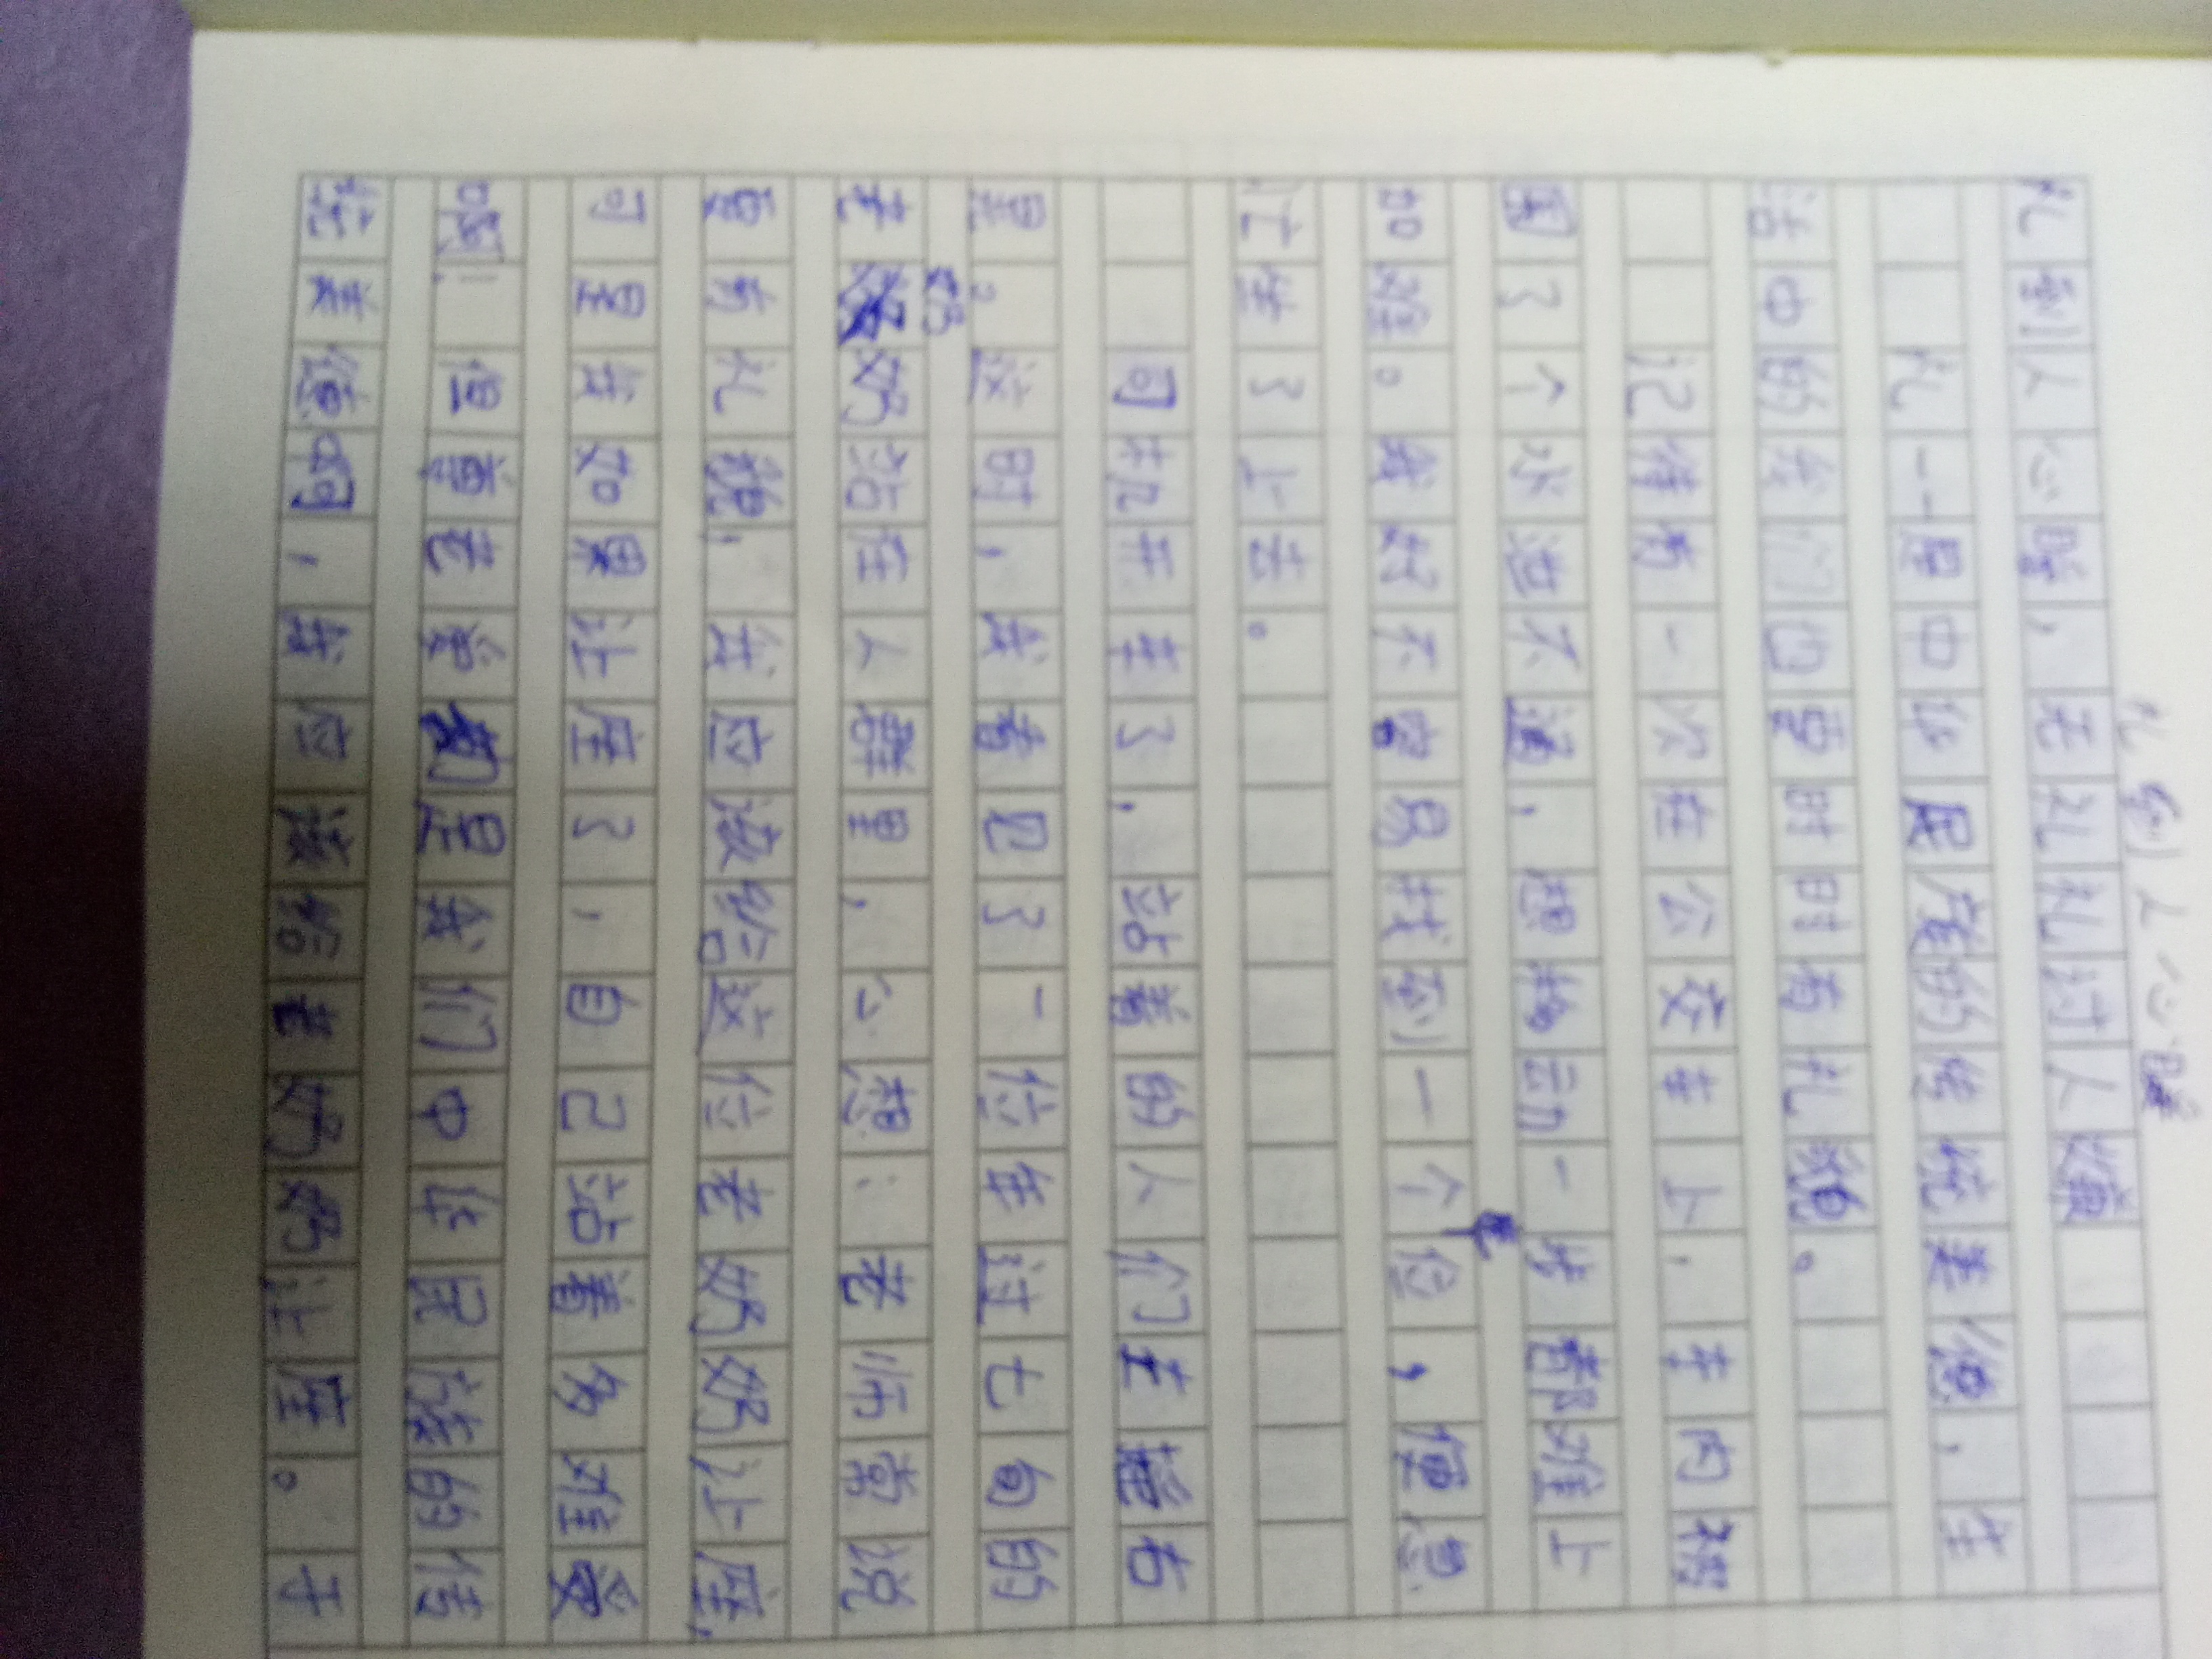 礼到人心暖
礼到人心暖，无礼讨人嫌
礼——是中华民族的传统美德，生
活中的我们也要时时有礼貌。
记得有一次在公交车上，车内拥
围了个水泄不通，想挪动一步都难上
加难。我好不容易找到一个座位，便急
忙坐了上去。
司机开车了，站着的人们左摇右
晃。这时，我看见了一位年过七旬的
老奶奶站在人群里，心想：老师常说
要有礼貌，我应该给这位老奶奶让座，
可是我如果让座了，自己站着多难受
啊！但尊老爱幼是我们中华民族的传
统美德啊，我应该给老奶奶让座。于